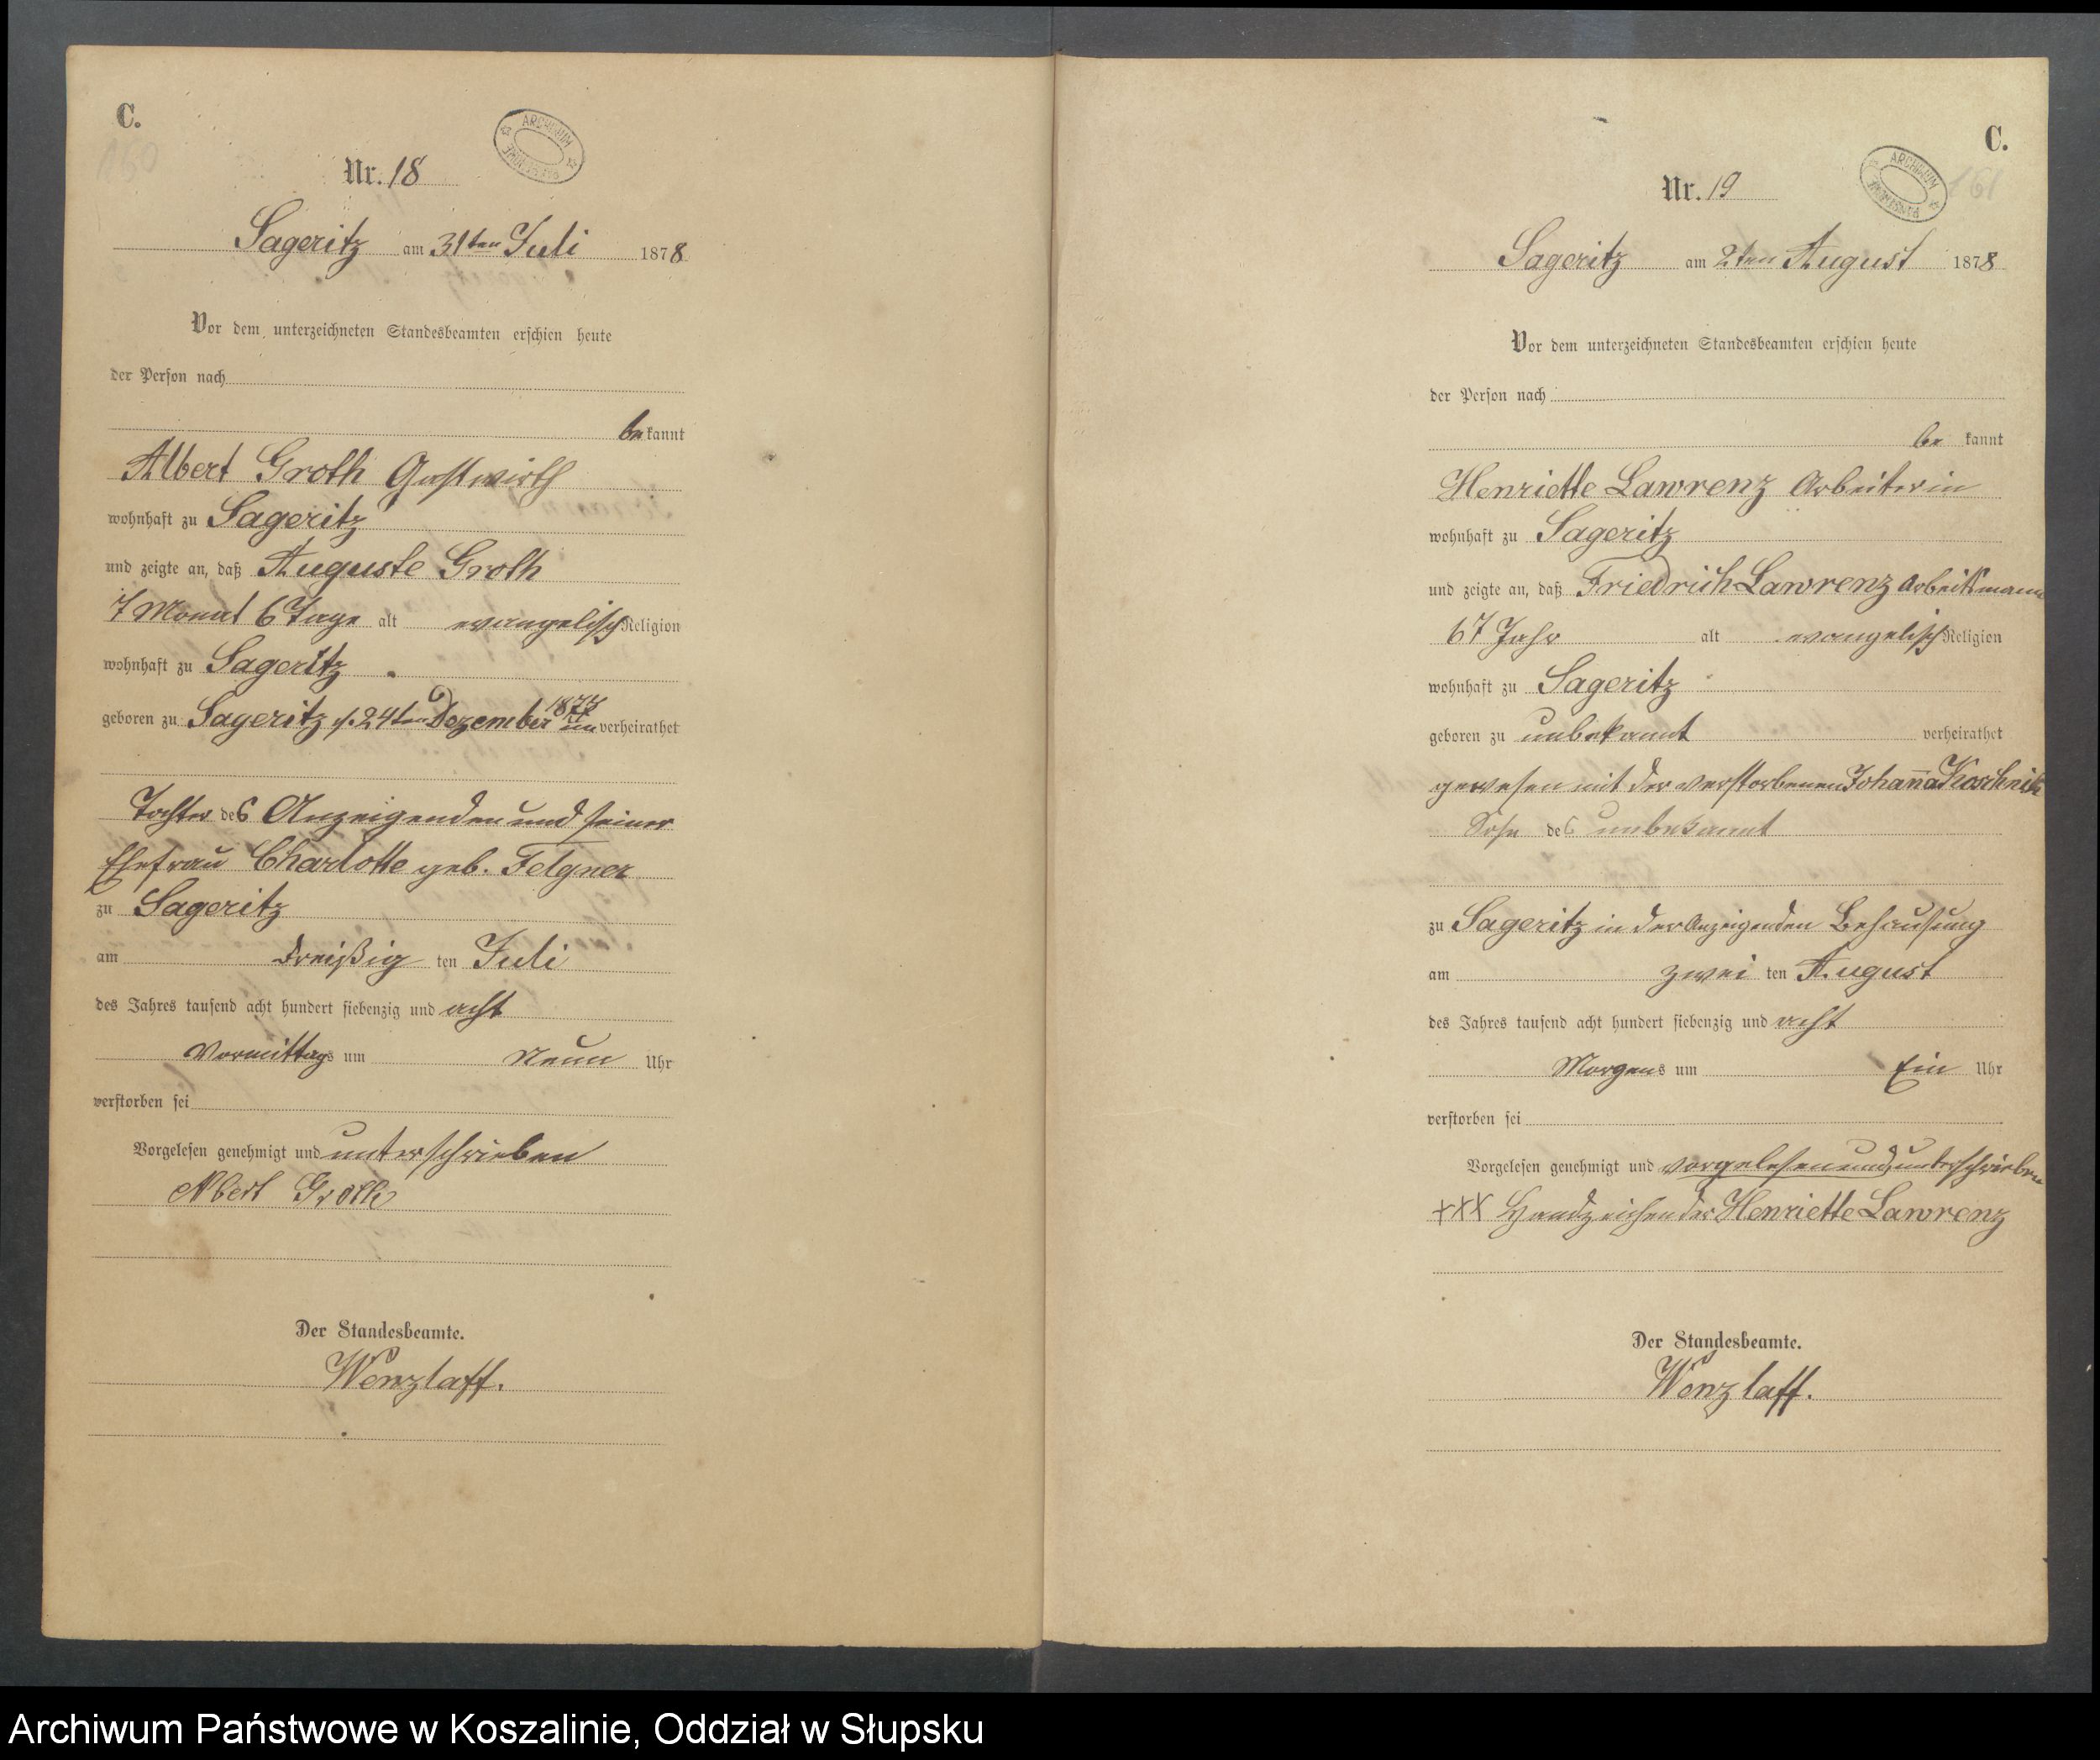 C.
160
ARCHIWUM PAŃSTWOWE
Nr. 18
Sageritz am 31ten Juli 1878
Vor dem unterzeichneten Standesbeamten erschien heute
der Person nach
bekannt
Albert Groth Gastwirth
wohnhaft zu Sageritz
und zeigte an, daß Auguste Groth
7 Monat 6 Tage alt evangelisch Religion
wohnhaft zu Sageritz
geboren zu Sageritz d. 24ten Dezember 1877 unverheirathet
Tochter des Anzeigenden und seiner
Ehefrau Charlotte geb. Felgner
zu Sageritz
am dreißig ten Juli
des Jahres tausend acht hundert siebenzig und acht
Vormittags um Neun Uhr
verstorben sei
Vorgelesen genehmigt und unterschrieben
Albert Groth
Der Standesbeamte.
Wenzlaff.
C.
161
ARCHIWUM PAŃSTWOWE
Nr. 19
Sageritz am 2ten August 1878
Vor dem unterzeichneten Standesbeamten erschien heute
der Person nach
be kannt
Henriette Lawrenz Arbeiterin
wohnhaft zu Sageritz
und zeigte an, daß Friedrich Lawrenz Arbeitsmann
67 Jahr alt evangelisch Religion
wohnhaft zu Sageritz
geboren zu unbekannt verheirathet
gewesen mit der verstorbenen Johanna Koschnik
Sohn des unbekannt
zu Sageritz in der Anzeigenden Behausung
am zwei ten August
des Jahres tausend acht hundert siebenzig und acht
Morgens um Ein Uhr
verstorben sei
Vorgelesen genehmigt und vorgelesen und unterschrieben
+++ Handzeichen der Henriette Lawrenz
Der Standesbeamte.
Wenzlaff.
Archiwum Państwowe w Koszalinie, Oddział w Słupsku